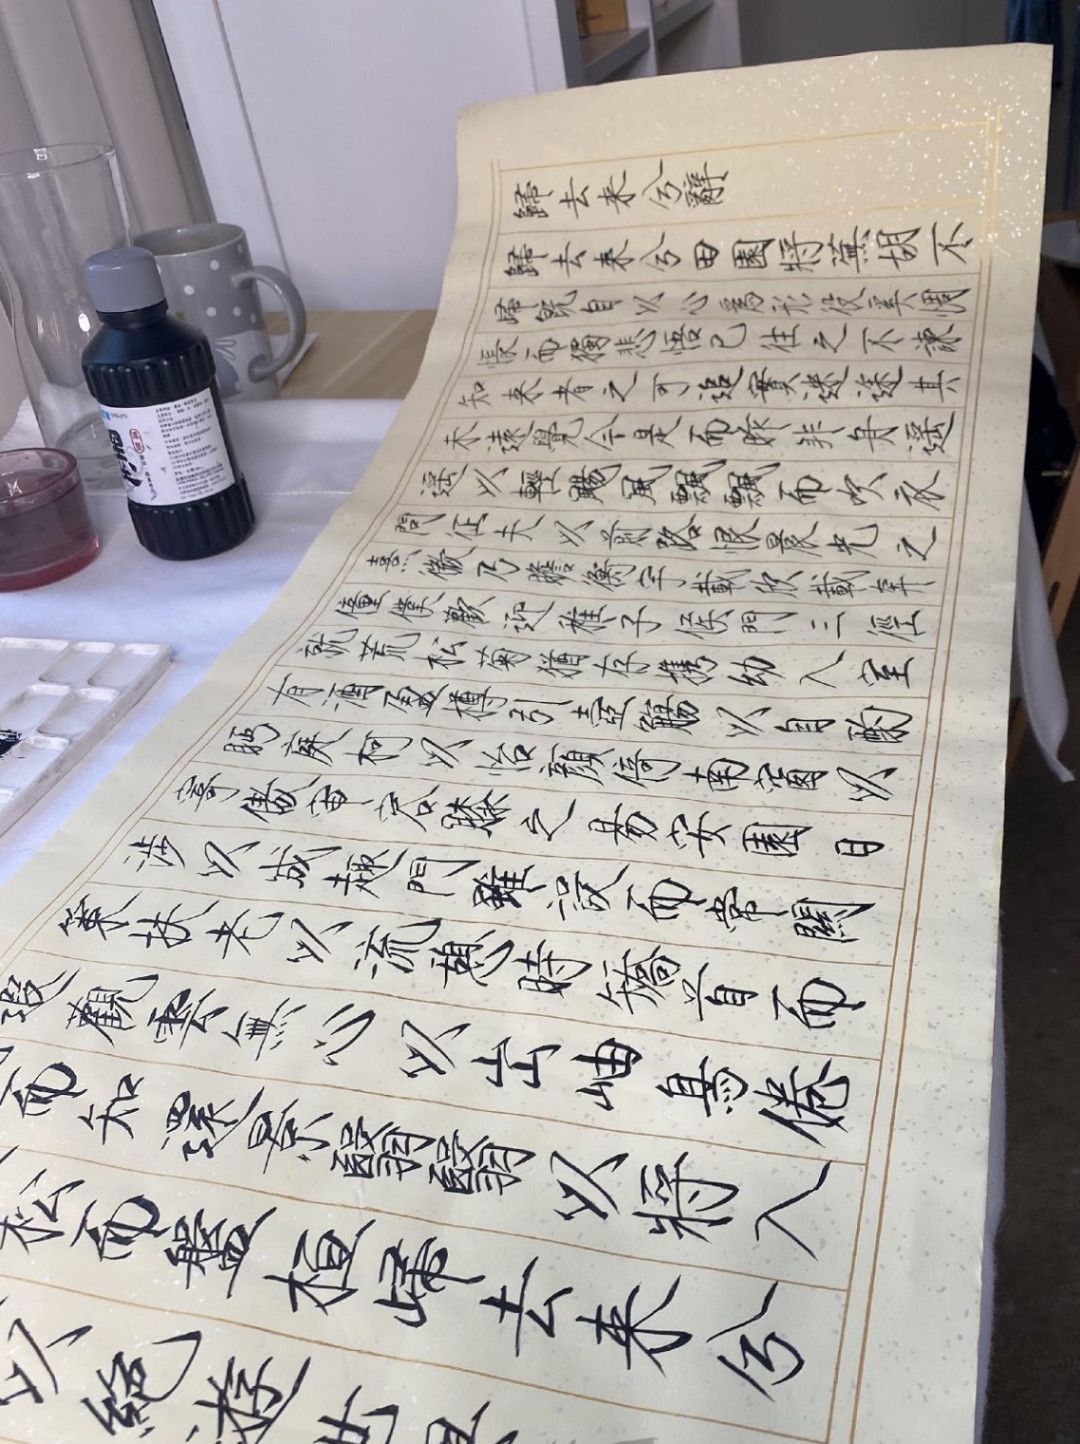 歸去来兮辭
歸去来兮田園將蕪胡不
歸既自以心為形役奚惆
悵而獨悲悟已往之不諫
知来者之可追實迷途其
未遠覺今是而昨非舟遥
遥以輕颺風飄飄而吹衣
問征夫以前路恨晨光之
熹微乃瞻衡宇載欣載奔
僮僕歡迎稚子候門三徑
就荒松菊猶存攜幼入室
有酒盈樽引壺觴以自酌
眄庭柯以怡顏倚南窗以
寄傲審容膝之易安園日
涉以成趣門雖設而常關
策扶老以流憩時矯首而
遐觀雲無心以出岫鳥倦
而知還景翳翳以將入
松而盤桓歸去来兮
以絕遊世
墨汁